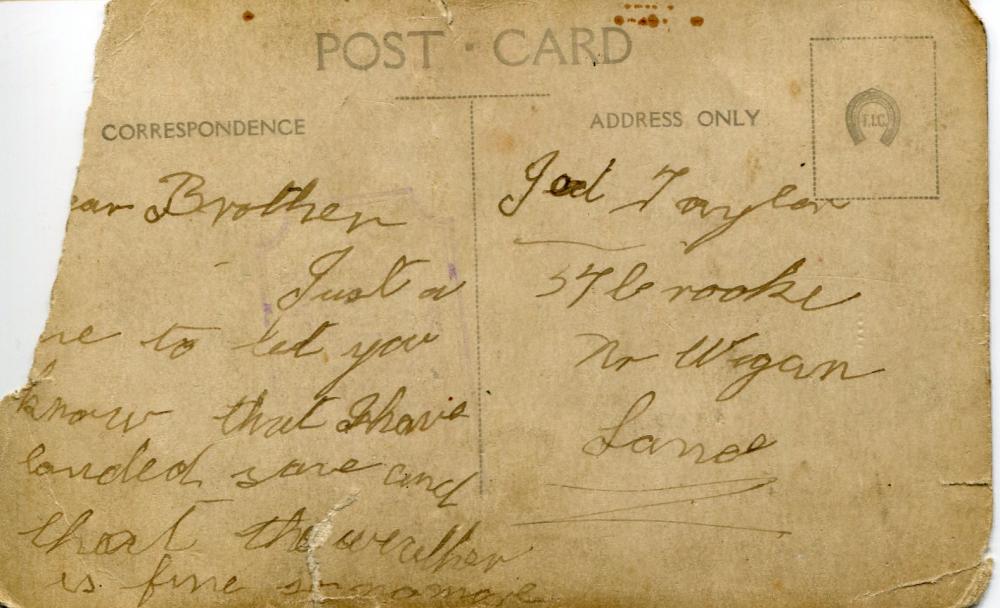 POST CARD
CORRESPONDENCE
ear Brother
Just a
ne to let you
know that I have
landed save and
that the weather
is fine so no more
ADDRESS ONLY
T.I.C.
Taylor
57 Crooke
Nr Wigan
Lanc